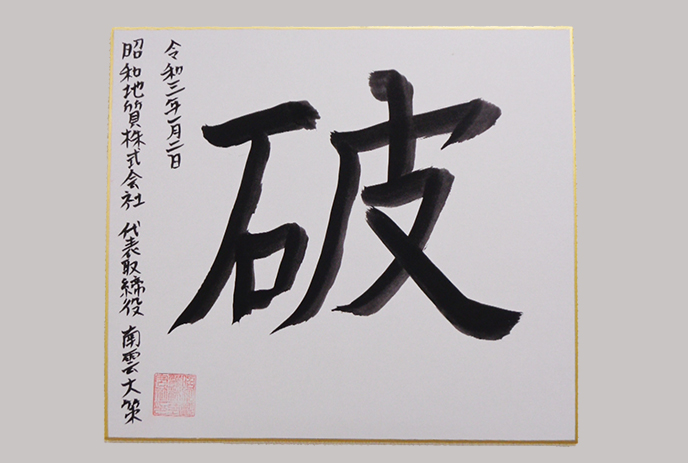 破
令和三年一月二日
昭和地質株式会社 代表取締役 南雲大策